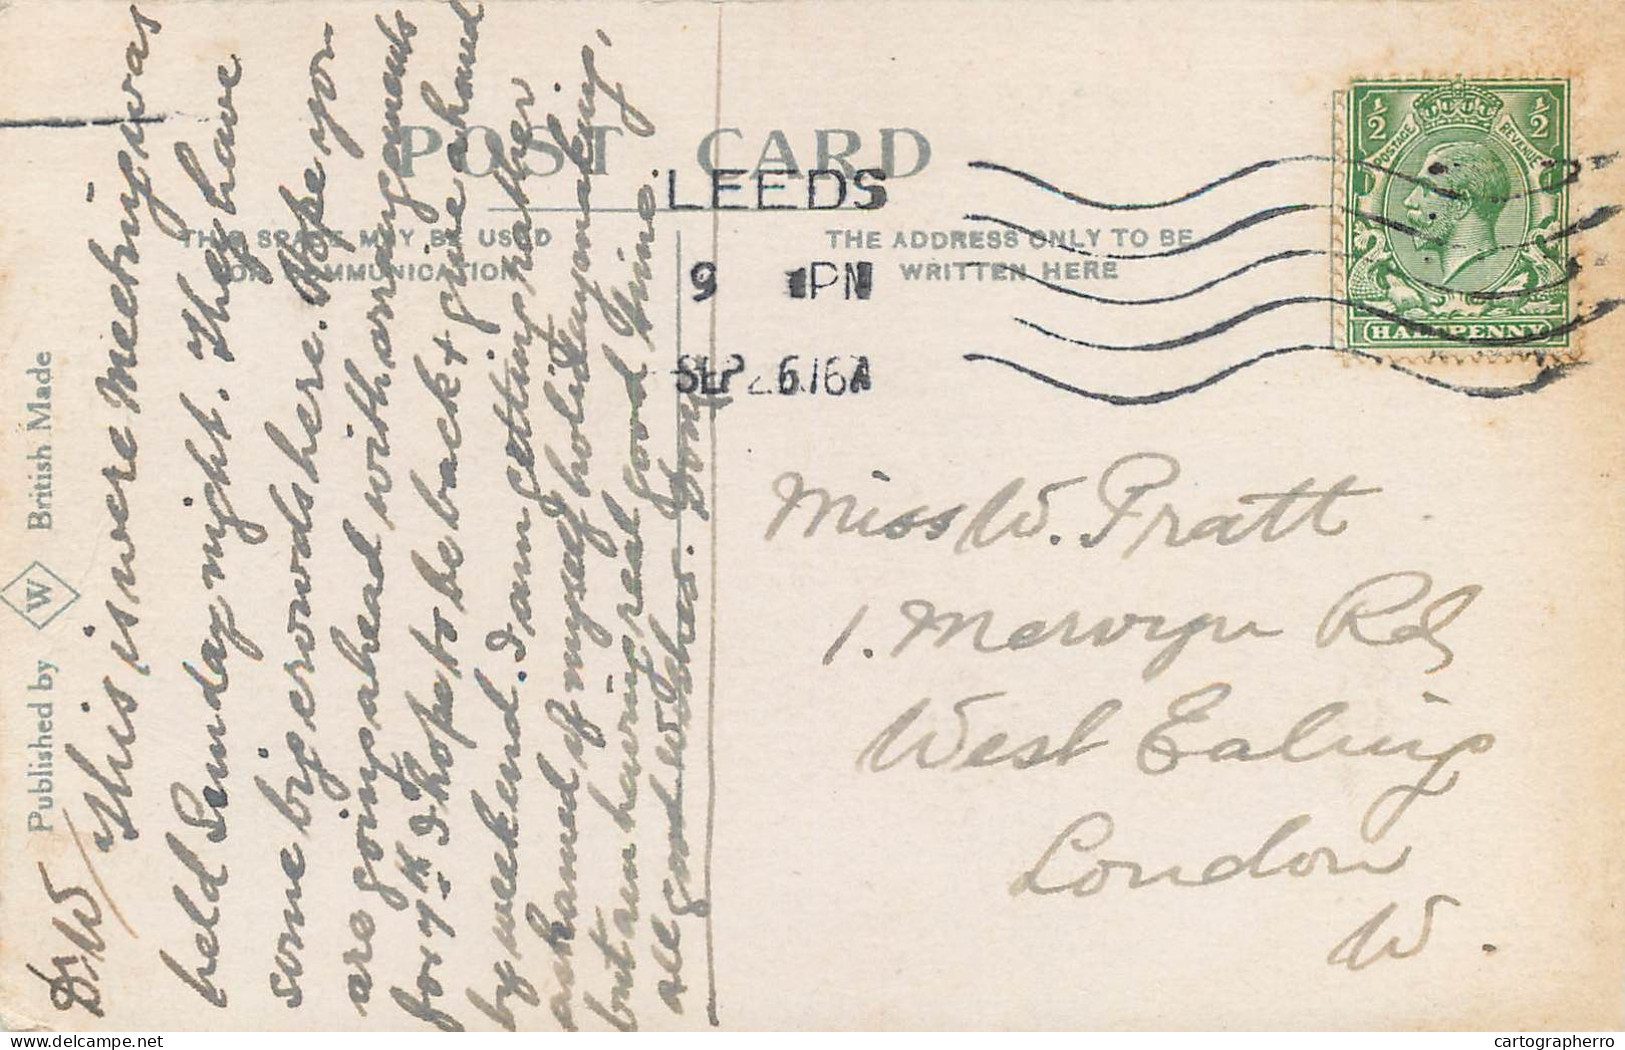 POST CARD
THIS SPACE MAY BE USED
FOR COMMUNICATION
THE ADDRESS ONLY TO BE
WRITTEN HERE
LEEDS
9 PM
SEP 26 16
½ ½
POSTAGE REVENUE
HALFPENNY
Published by W British Made
Dr W/ This is were Meeting was
held Sunday night. They have
some big crowds here. Hope you
are going ahead with arrangements
for 7th. I hope to be back & give a hand
by weekend. I am getting rather
ashamed of myself holidaymaking,
but am having real good time.
all good wishes.
Miss W. Pratt
1. Mervyn Rd
West Ealing
London
W.
www.delcampe.net
cartographerro